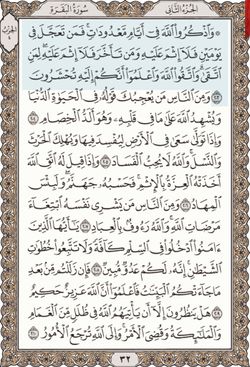 سُورَةُ البَقَرَةِ
الجُزْءُ الثَّانِي
وَاذْكُرُوا اللَّهَ فِي أَيَّامٍ مَعْدُودَاتٍ فَمَنْ تَعَجَّلَ فِي
يَوْمَيْنِ فَلَا إِثْمَ عَلَيْهِ وَمَنْ تَأَخَّرَ فَلَا إِثْمَ عَلَيْهِ لِمَنِ
اتَّقَى وَاتَّقُوا اللَّهَ وَاعْلَمُوا أَنَّكُمْ إِلَيْهِ تُحْشَرُونَ
٢٠٣ وَمِنَ النَّاسِ مَنْ يُعْجِبُكَ قَوْلُهُ فِي الْحَيَاةِ الدُّنْيَا
وَيُشْهِدُ اللَّهَ عَلَى مَا فِي قَلْبِهِ وَهُوَ أَلَدُّ الْخِصَامِ ٢٠٤
وَإِذَا تَوَلَّى سَعَى فِي الْأَرْضِ لِيُفْسِدَ فِيهَا وَيُهْلِكَ الْحَرْثَ
وَالنَّسْلَ وَاللَّهُ لَا يُحِبُّ الْفَسَادَ ٢٠٥ وَإِذَا قِيلَ لَهُ اتَّقِ اللَّهَ
أَخَذَتْهُ الْعِزَّةُ بِالْإِثْمِ فَحَسْبُهُ جَهَنَّمُ وَلَبِئْسَ
الْمِهَادُ ٢٠٦ وَمِنَ النَّاسِ مَنْ يَشْرِي نَفْسَهُ ابْتِغَاءَ
مَرْضَاتِ اللَّهِ وَاللَّهُ رَءُوفٌ بِالْعِبَادِ ٢٠٧ يَا أَيُّهَا الَّذِينَ
آمَنُوا ادْخُلُوا فِي السِّلْمِ كَافَّةً وَلَا تَتَّبِعُوا خُطُوَاتِ
الشَّيْطَانِ إِنَّهُ لَكُمْ عَدُوٌّ مُبِينٌ ٢٠٨ فَإِنْ زَلَلْتُمْ مِنْ بَعْدِ
مَا جَاءَتْكُمُ الْبَيِّنَاتُ فَاعْلَمُوا أَنَّ اللَّهَ عَزِيزٌ حَكِيمٌ ٢٠٩
هَلْ يَنْظُرُونَ إِلَّا أَنْ يَأْتِيَهُمُ اللَّهُ فِي ظُلَلٍ مِنَ الْغَمَامِ
وَالْمَلَائِكَةُ وَقُضِيَ الْأَمْرُ وَإِلَى اللَّهِ تُرْجَعُ الْأُمُورُ ٢١٠
٣٢